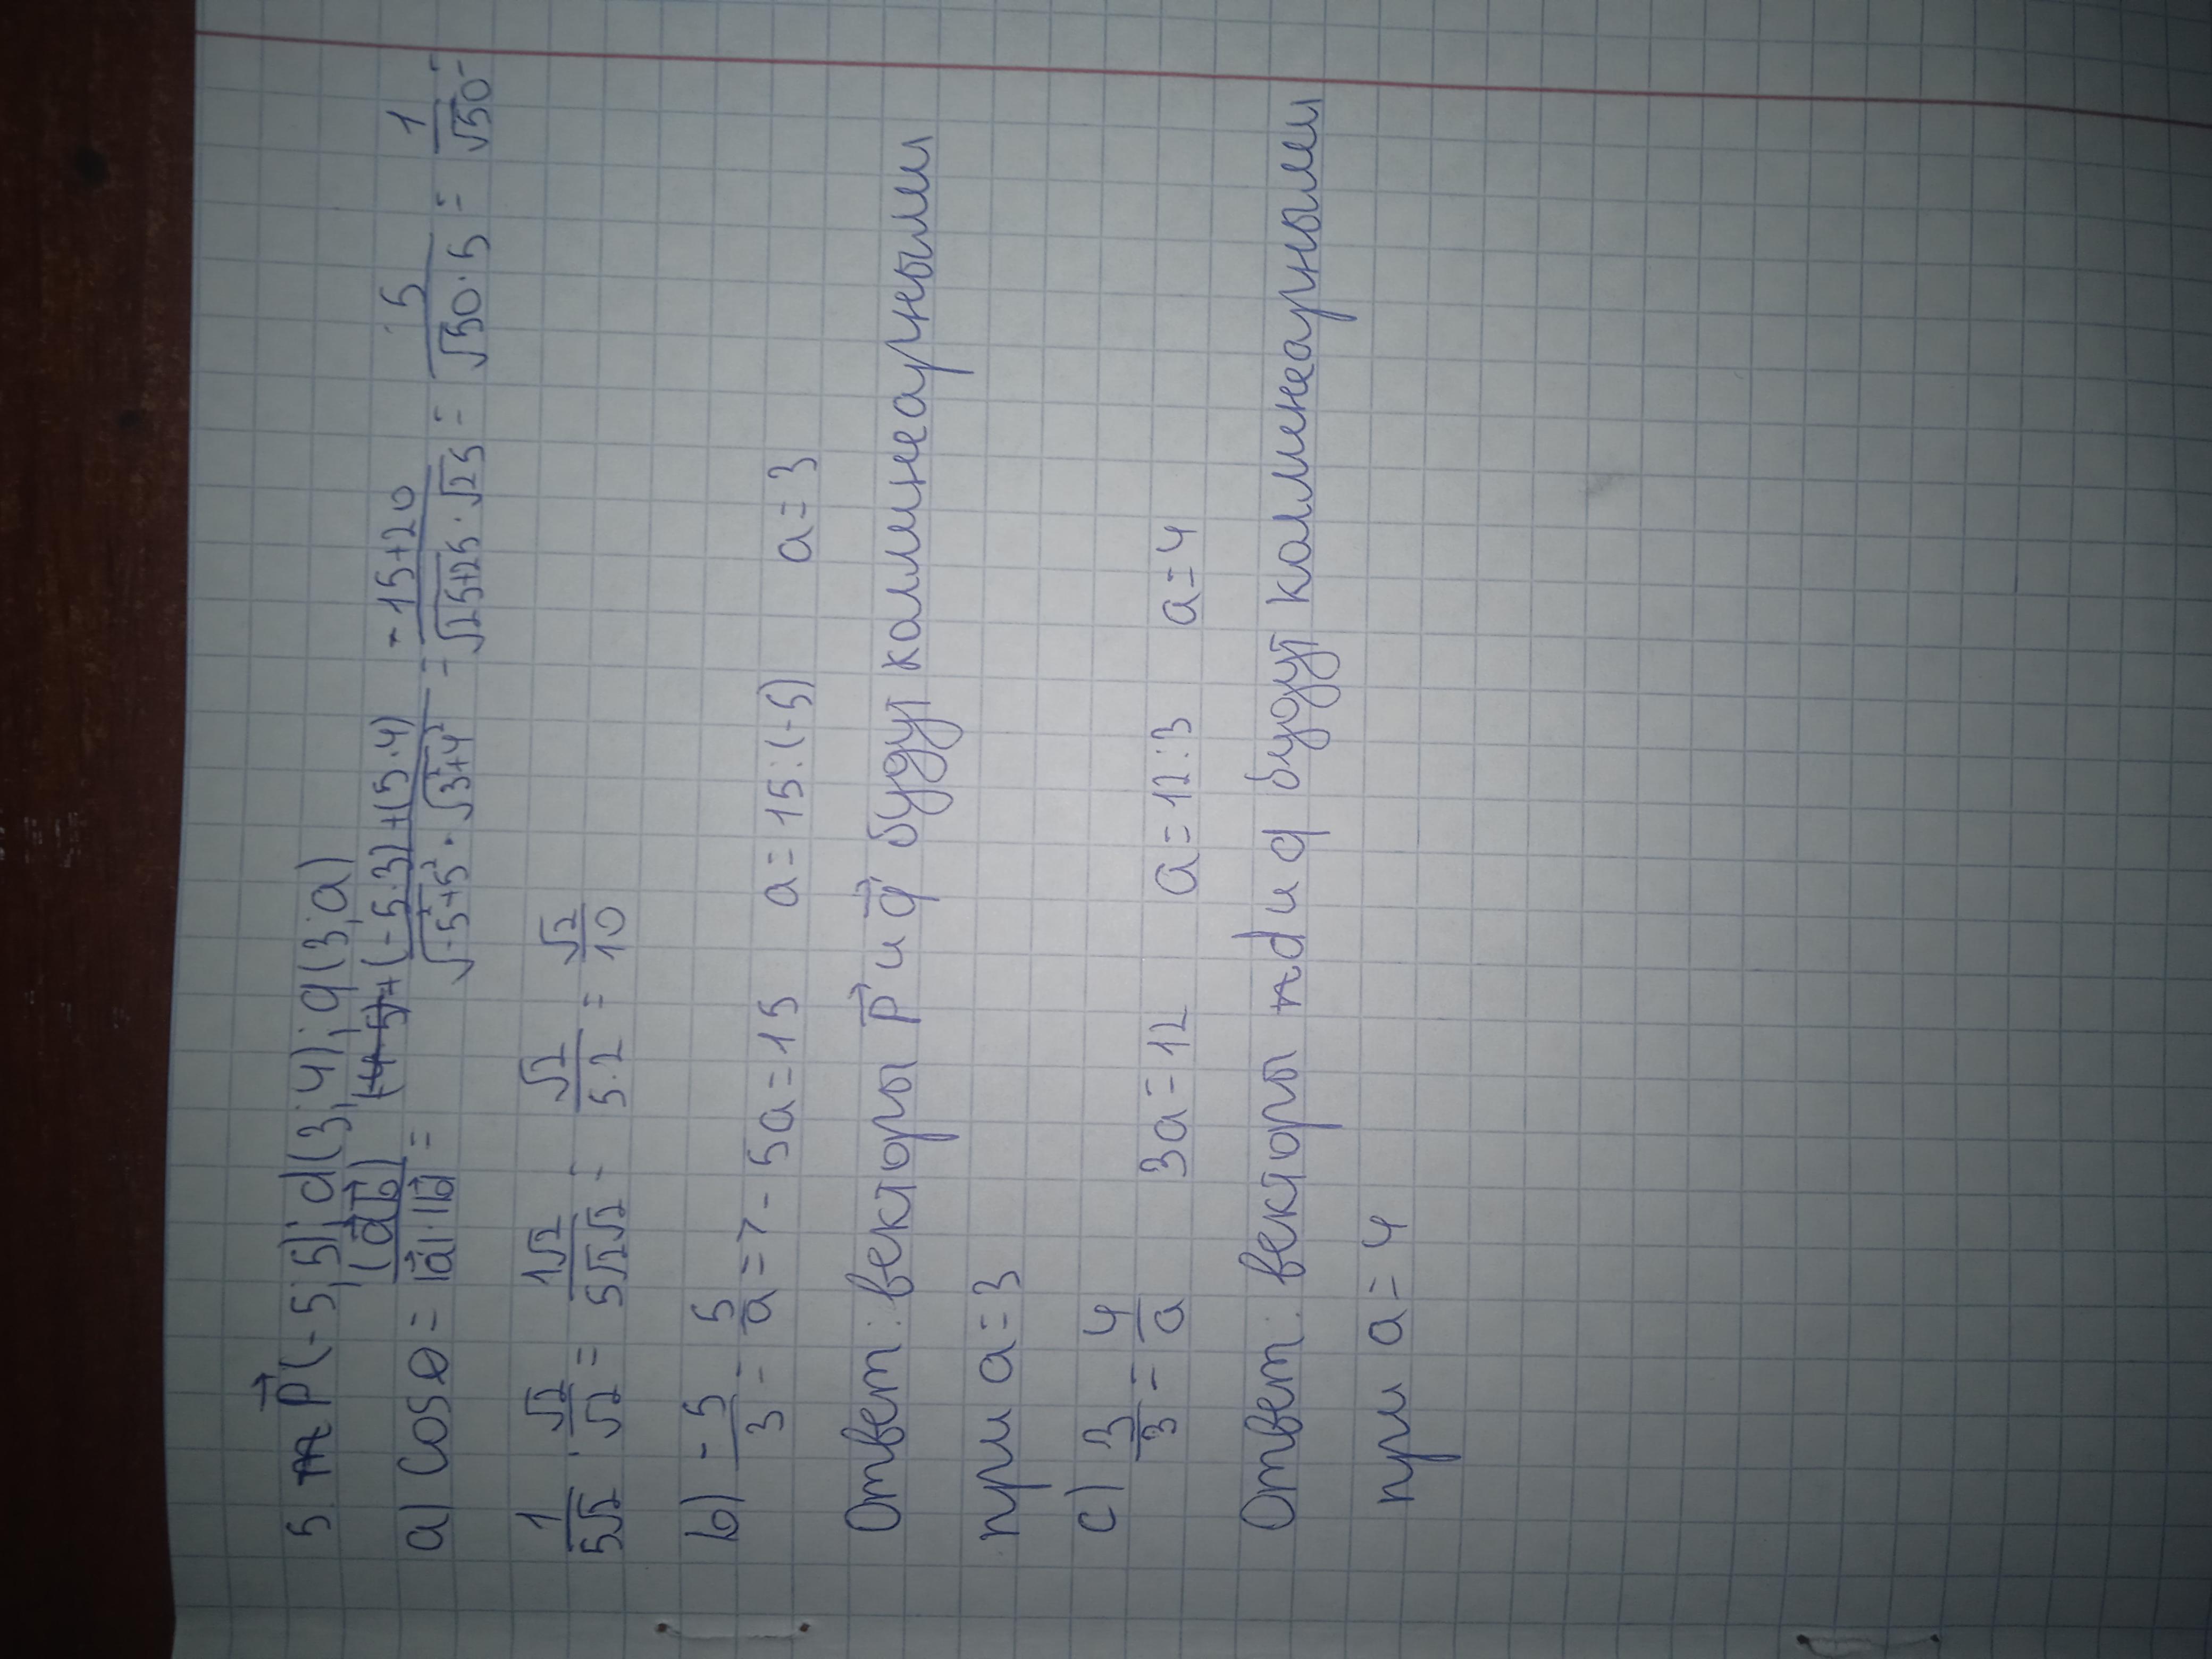 5. p⃗(-5;5); d(3;4); q(3;a)
a) cosθ = (a⃗b⃗)/(|a⃗|·|b⃗|) = ((-5·3)+(5·4))/(√-5²+5² · √3²+4²) = (-15+20)/(√25+25 · √25) = 5/(√50·5) = 1/√50 =
1/5√2 · √2/√2 = 1√2/5√2√2 = √2/5·2 = √2/10
b) -5/3 = 5/a => -5a=15 a=15:(-5) a=3
Ответ: векторы p⃗ и q⃗ будут коллинеарными
при a=3
c) 3/3 = 4/a 3a=12 a=12:3 a=4
Ответ: векторы d и q будут коллинеарными
при a=4